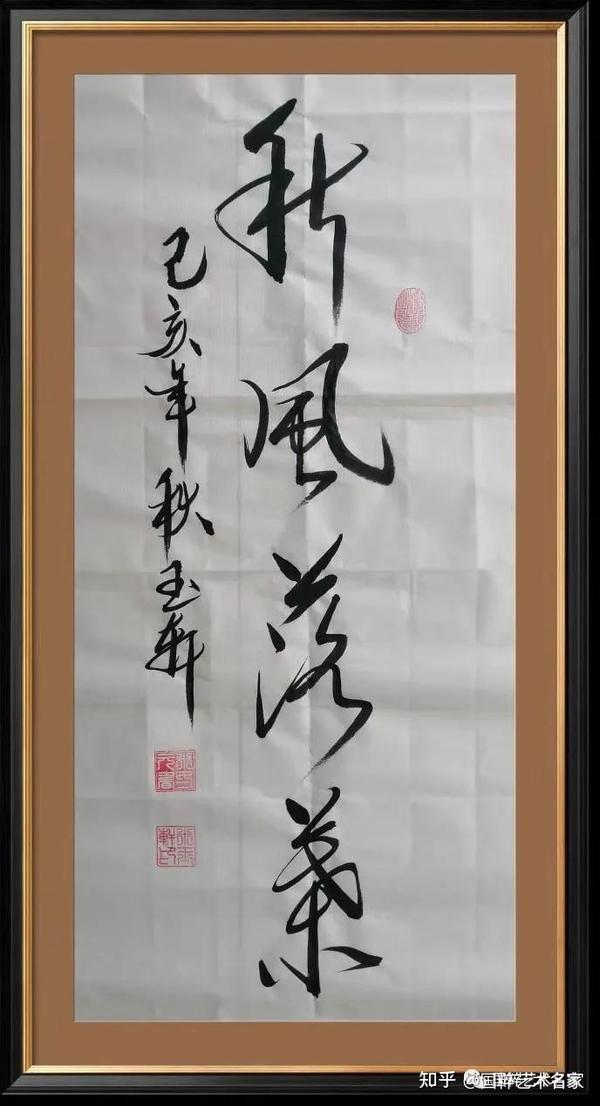 秋風落葉
己亥年秋玉軒
知乎 @国粹艺术名家